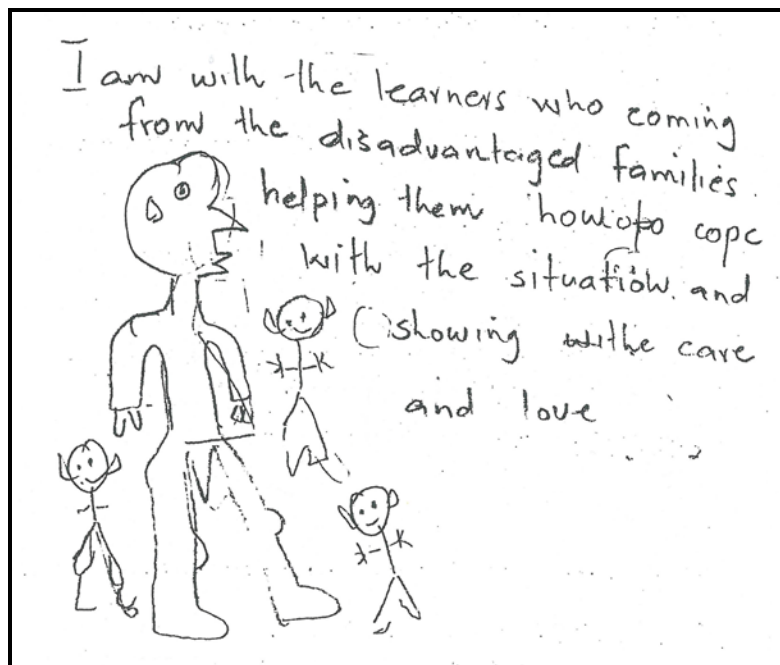 I am with the learners who coming
from the disadvantaged families
helping them how to cope
with the situation. and
showing the care
and love